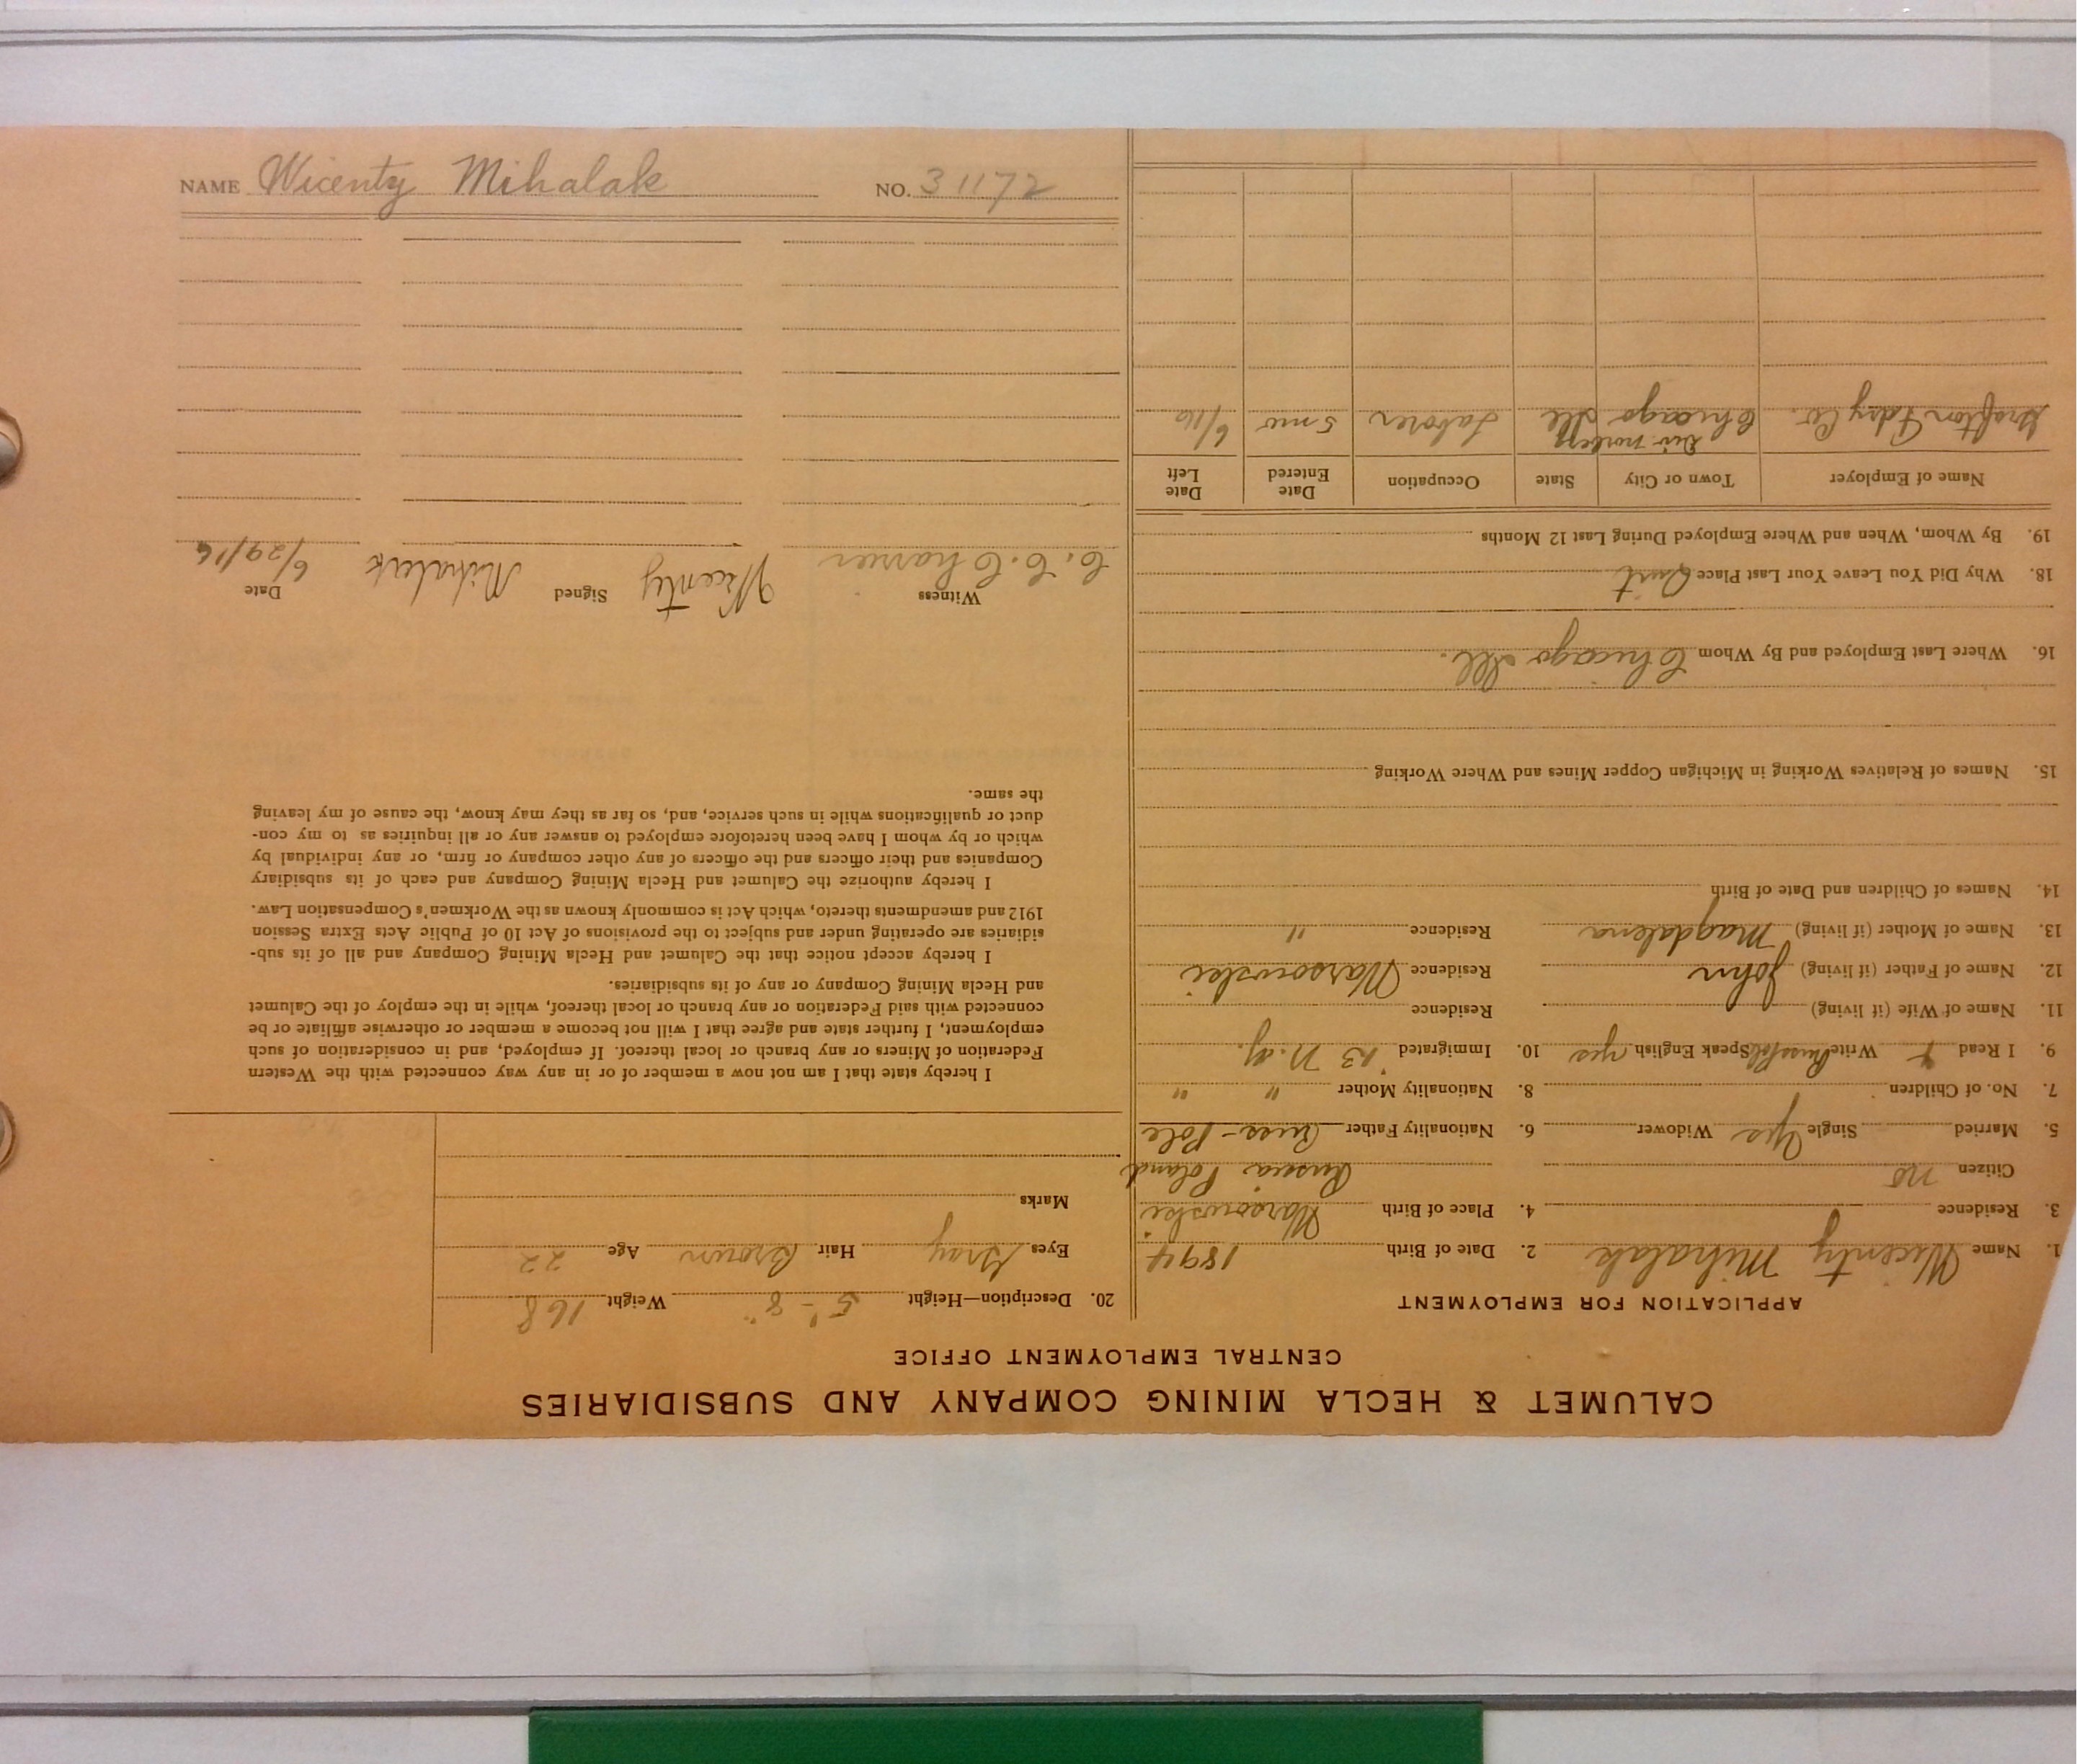 CALUMET & HECLA MINING COMPANY AND SUBSIDIARIES
CENTRAL EMPLOYMENT OFFICE
APPLICATION FOR EMPLOYMENT
1. Name Wicenty Mihalak 2. Date of Birth 1894
3. Residence 4. Place of Birth Warsowski
Citizen no Russia Poland
5. Married Single Yes Widower 6. Nationality Father Russ-Pole
7. No. of Children 8. Nationality Mother " "
9. I Read & Write Speak English yes 10. Immigrated '13 N.Y.
11. Name of Wife (if living) Residence
12. Name of Father (if living) John Residence Warsowski
13. Name of Mother (if living) Magdalena Residence "
14. Names of Children and Date of Birth
15. Names of Relatives Working in Michigan Copper Mines and Where Working
16. Where Last Employed and By Whom Chicago Ill.
18. Why Did You Leave Your Last Place Quit
19. By Whom, When and Where Employed During Last 12 Months
Name of Employer Town or City State Occupation Date Entered Date Left
Grafton Fdry Co. Chicago Ill Laborer 5 mo 6/16
20. Description—Height 5'-8" Weight 168
Eyes Gray Hair Brown Age 22
Marks
I hereby state that I am not now a member of or in any way connected with the Western
Federation of Miners or any branch or local thereof. If employed, and in consideration of such
employment, I further state and agree that I will not become a member or otherwise affiliate or be
connected with said Federation or any branch or local thereof, while in the employ of the Calumet
and Hecla Mining Company or any of its subsidiaries.
I hereby accept notice that the Calumet and Hecla Mining Company and all of its sub-
sidiaries are operating under and subject to the provisions of Act 10 of Public Acts Extra Session
1912 and amendments thereto, which Act is commonly known as the Workmen's Compensation Law.
I hereby authorize the Calumet and Hecla Mining Company and each of its subsidiary
Companies and their officers and the officers of any other company or firm, or any individual by
which or by whom I have been heretofore employed to answer any or all inquiries as to my con-
duct or qualifications while in such service, and, so far as they may know, the cause of my leaving
the same.
Witness Signed Date
C. C. Charrier Wicenty Mihalak 6/29/16
NAME Wicenty Mihalak NO. 31172